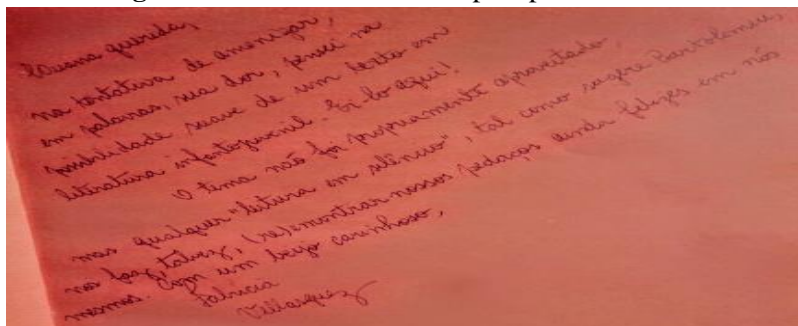 querida,
na tentativa de amenizar,
em palavras, sua dor, pensei na
possibilidade suave de um texto em
literatura infantojuvenil. Ei-lo aqui!
O tema não foi propriamente aproveitado,
mas qualquer "leitura em silêncio", tal como sugere Bartolomeu,
nos faz, talvez, (re)encontrar nossos pedaços ainda felizes em nós
mesmos. Com um beijo carinhoso,
Fabrícia
Vellasquez